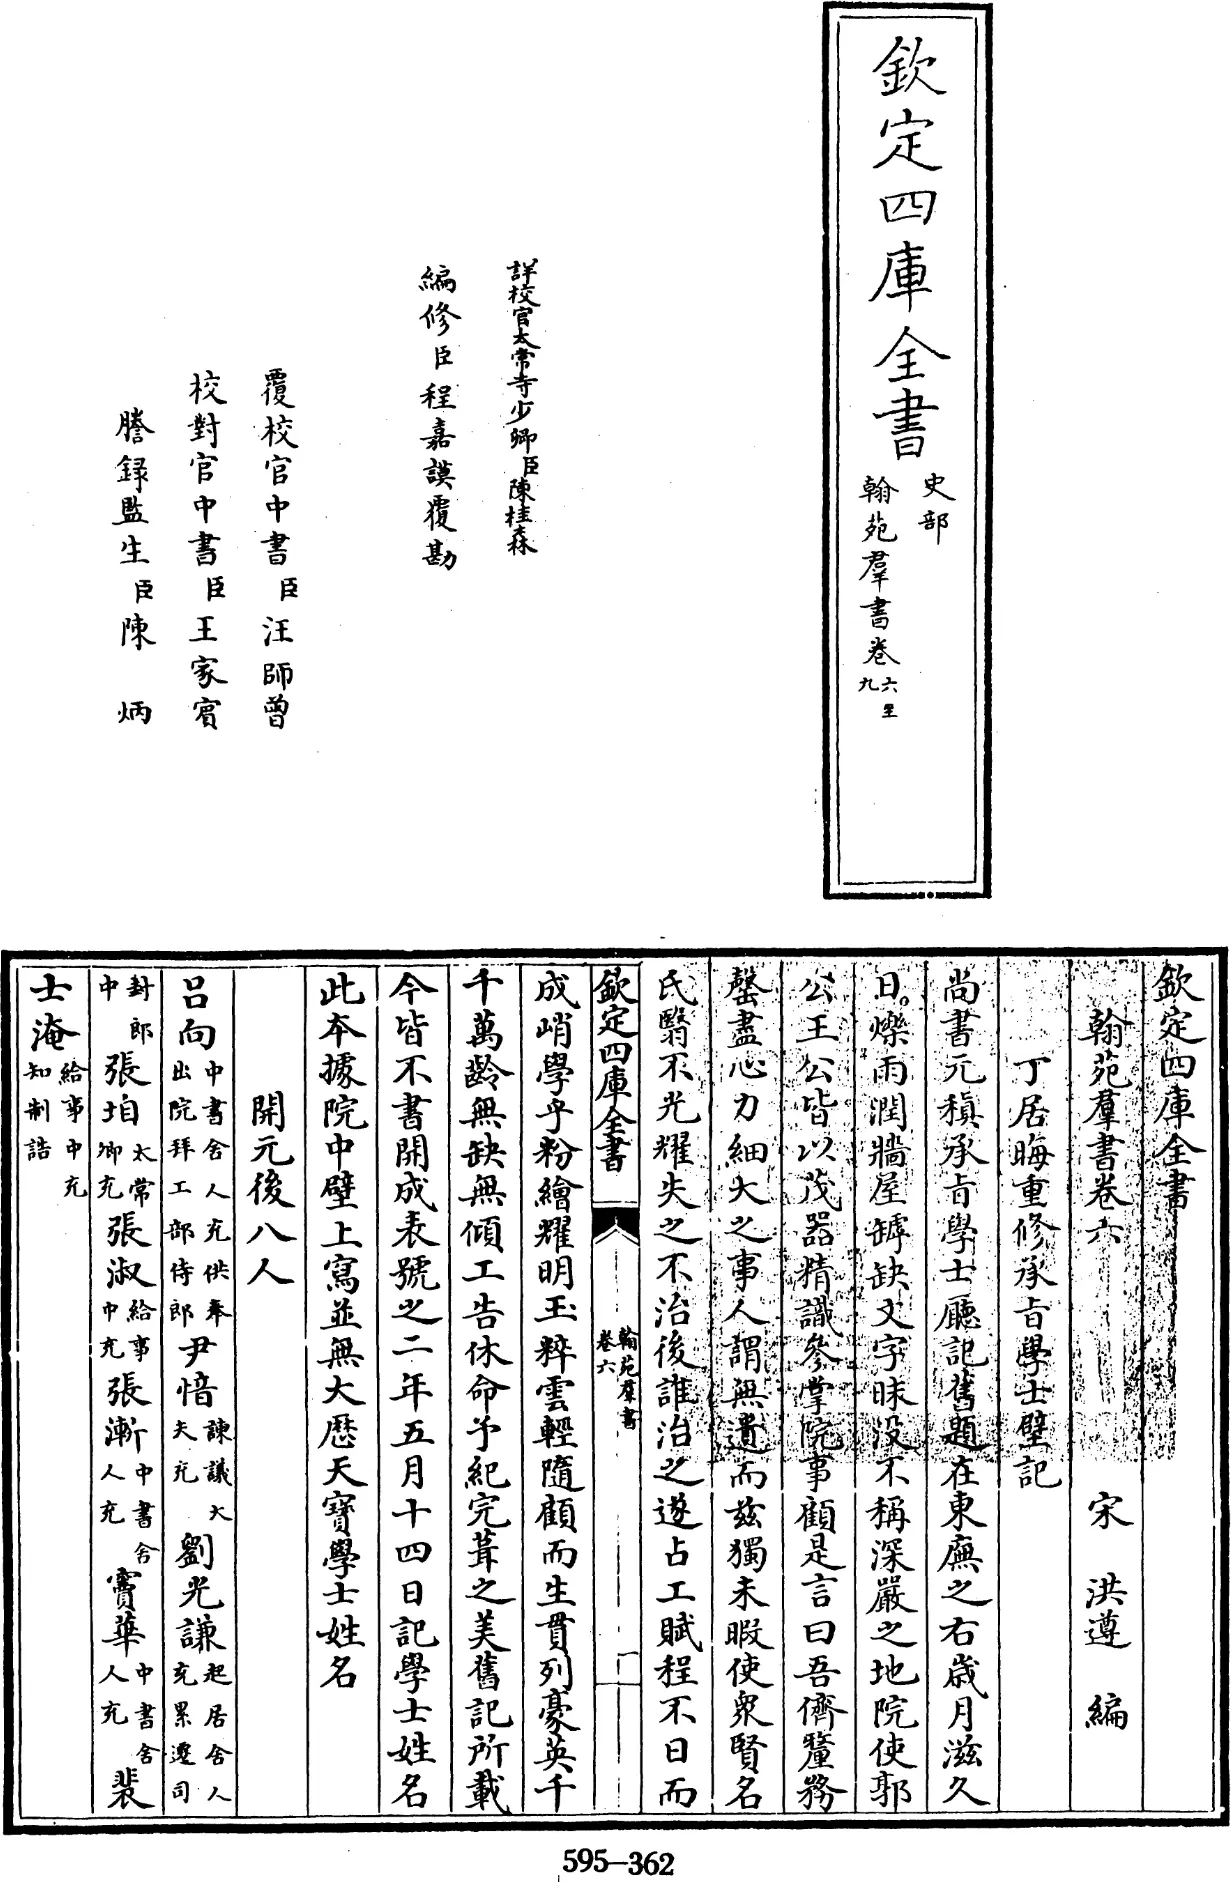 欽定四庫全書
史部
翰苑羣書卷六至九
詳校官太常寺少卿臣陳桂森
編修臣程嘉謨覆勘
覆校官中書臣汪師曾
校對官中書臣王家賓
謄録監生臣陳炳
欽定四庫全書
翰苑羣書卷六
宋 洪遵 編
丁居晦重修承旨學士壁記
尚書元稹承旨學士廳記舊題在東廡之右歲月滋久
日爍雨潤牆屋罅缺文字昧没不稱深嚴之地院使郭
公王公皆以茂器精識參掌院事顧是言曰吾儕釐務
罄盡心力細大之事人謂無遺而兹獨未暇使衆賢名
氏翳不光耀失之不治後誰治之遂占工賦程不日而
欽定四庫全書
翰苑羣書
卷六
一
成峭學乎粉繪耀明玉粹雲輕隨顧而生貫列豪英千
千萬齡無缺無傾工告休命予紀完葺之美舊記所載
今皆不書開成表號之二年五月十四日記學士姓名
此本據院中壁上寫並無大歴天寳學士姓名
開元後八人
吕向中書舍人充供奉出院拜工部侍郎尹愔諫議大夫充劉光謙起居舍人充累遷司
封郎中張垍太常卿充張淑給事中充張漸中書舍人充竇華中書舍人充裴
士淹給事中充知制誥
595-362